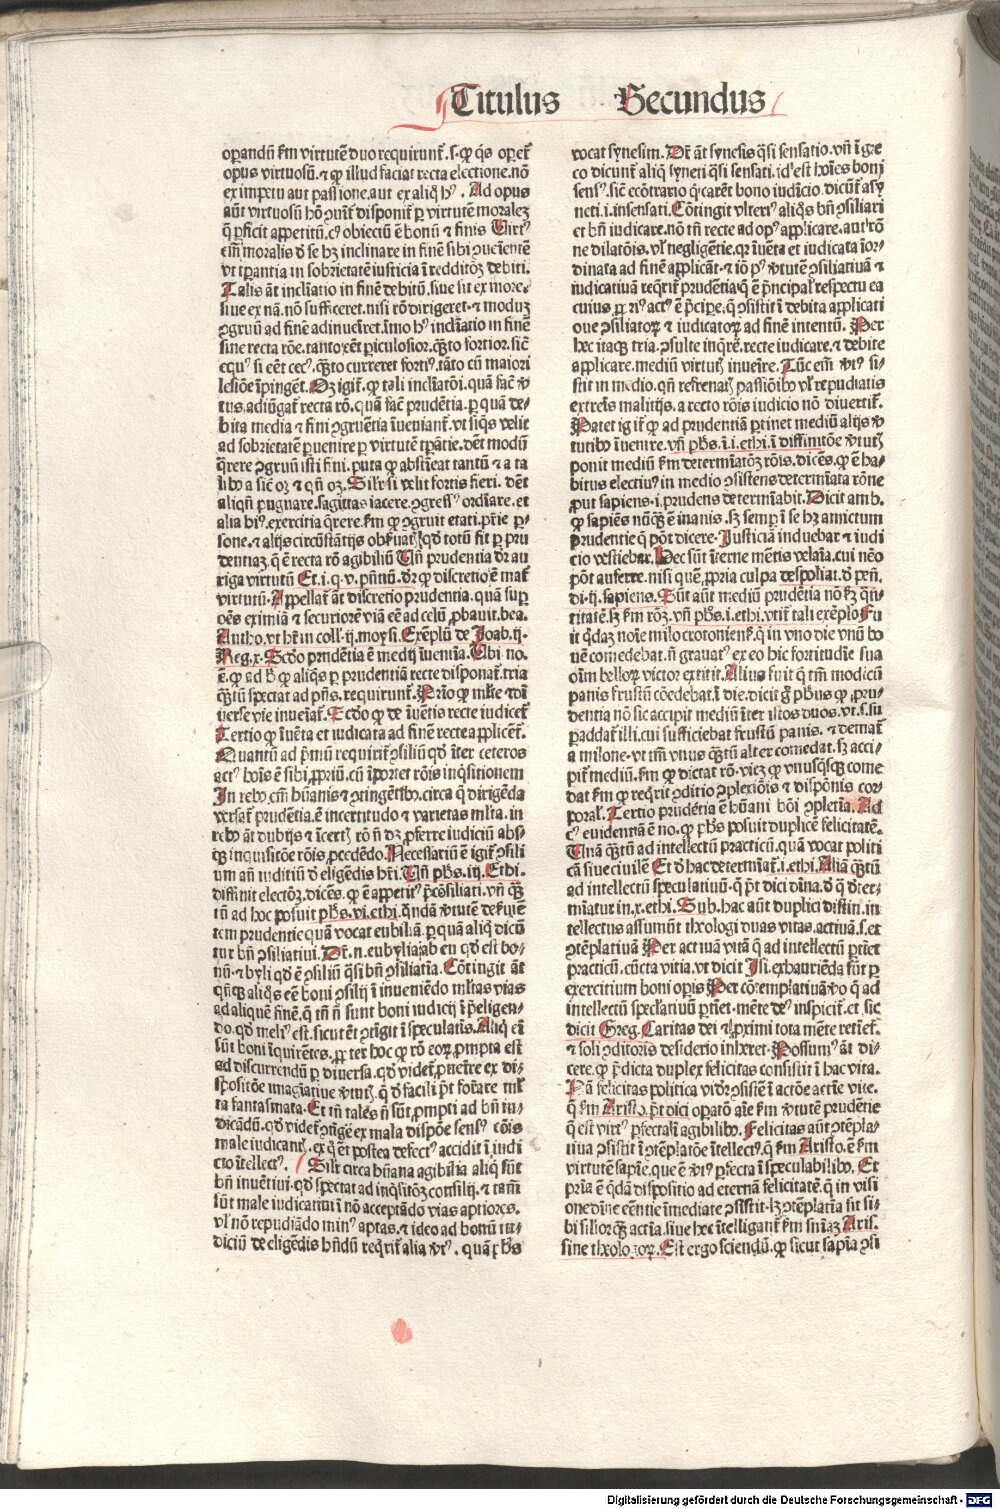 Titulus Secundus
operandū ẜm virtutē duo requirunt̄. s. ꝙ q̄s operet̄
opus virtuosū. ⁊ ꝙ illud faciat recta electione. nō
ex impetu aut passione. aut ex aliq̊ hꝰ. Ad opus
aūt virtuosū hō ꝯuēit̄ disponit̄ ꝑ virtutē moralē
q̄ ꝑficit appetitū. cꝰ obiectū ē bonū ⁊ finis Virtꝰ
em̄ moralis d̄ se hꝫ inclinare in finē sibi ꝯueniente
vt tꝑantia in sobrietatē iusticia ī redditōꝫ debiti.
Talis āt inclīatio in finē debitū. siue sit ex more.
siue ex nā. nō sufficeret. nisi rō dirigeret. ⁊ moduꝫ
ꝯgruū ad finē adinueniret. īmo hꝰ inclīatio in finē
sine recta rōe. tanto eēt ꝑiculosior. q̄ꝫto fortior. sic̄
equꝰ si eēt cecꝰ. q̄ꝫto curreret fortiꝰ. tāto cū maiori
lesiōe īpinget̄. Oꝫ igit̄. ꝙ tali inclīatōi. quā fac̄ v̓
tus. adiūgat̄ recta rō. quā fac̄ prudētia. ꝑ quā de
bita media ⁊ fini ꝯgruētia īueniant̄. vt siq̄s velit
ad sobrietatē ꝑuenire ꝑ virtutē tꝑātie. dēt modū
q̄rere ꝯgruū isti fini. puta ꝙ abstineat tantū ⁊ a ta
libꝰ a sic̄ oꝫ ⁊ qn̄ oꝫ. Silr̄ si velit fortis fieri. dēt
aliqn̄ pugnare. sagittas iacere. ꝯgressꝰ ordīare. et
alia hiꝰ. exercitia q̄rere. ẜm ꝙ ꝯgruit etati. pr̄ie ꝑ
sone. ⁊ alijs circūstātijs obẜuat̄. qd̄ totū fit ꝑ pru
dentiaꝫ. q̄ ē recta rō agibiliū Un̄ prudentia dr̄ au
riga virtutū Et. i. q. v. pn̄tiū. dr̄ ꝙ discretio ē mat̄
virtutū. Appellat̄ āt discretio prudentia. quā suꝑ
oēs eximiā ⁊ securiorē viā eē ad celū ꝓbauit bea.
Antho. vt hr̄ in coll. ij. moysi. Exēplū de Joab. ij.
Reg. x. Scd̄o prudētia ē medij īuenīa. Ubi no.
Primo ꝙ mlte ⁊ di
uerse vie inueniat̄. Scd̄o ꝙ de īuētis recte iudicet̄
Tertio ꝙ īuēta et iudicata ad finē recte applicēt̄.
Quantū ad pͥmū requirit̄ ꝯsiliū qd̄ īter ceteros
actꝰ hoīs ē sibi ꝓpriū. cū īportet rōis inq̄sitionem
In rebꝰ em̄ hūanis ⁊ ꝯtingētibꝰ. circa q̄ dirigēda
versat̄ prudētia. ē incertitudo ⁊ varietas mlta. in
rebꝰ āt dubijs ⁊ īcertꝭ rō nō dꝫ ꝓferre iudiciū absꝫ
inquisitōe rōis p̄cedēdo. Necessariū ē igit̄ ꝯsili
um an̄ iuditiū d̄ eligēdis br̄i. Un̄ pbs. iij. Ethi.
diffinit electōꝫ. dicēs. ꝙ ē appetitꝰ p̄cōsiliati. vn̄ q̄ꝫ
tū ad hoc posuit pbs. vi. ethi. q̄ndā v̓tutē deẜuiē
tem prudentie quā vocat eubiliā. ꝑ quā aliq̄ dicū
tur bn̄ ꝯsiliatiui. Dr̄. n. eubylia ab eu qd̄ est bo
nū. ⁊ byli qd̄ ē ꝯsiliū q̄si bn̄ ꝯsiliatīa. Cōtingit āt
qn̄qꝫ aliq̄s eē boni ꝯsilij ī inueniēdo mltas vias
ad aliquē finē. q̄ tn̄ nō sunt boni iudicij ī p̄eligen
do. qd̄ meliꝰ est. sicut ēt ꝯtīgit ī speculatīs. Aliq̄ em̄
sūt boni īquirētes. ꝓpter hoc ꝙ rō eoꝝ ꝓmpta est
ad discurrendū ꝑ diuersa. qd̄ videt̄ ꝓuenire ex di
spositōe imagīatiue v̓tutꝭ. q̄ d̄ facili pt̄ formare ml
ta fantasmata. Et tn̄ tales nō sūt ꝓmpti ad bn̄ iu
dicādū. qd̄ videt̄ ꝯtīgere ex mala dispōe sensꝰ cōis
male iudicantꝭ. ex q̊ ēt postea defectꝰ accidit ī iudi
cio ītellectꝰ. Silr̄ circa hūana agibilia aliq̄ sūt
bn̄ inuētiui. qd̄ spectat ad inq̄sitōeꝫ consilij. ⁊ tam̄
sūt male iudicatiui ī nō acceptādo vias aptiores.
vl̓ nō repudiādo minꝰ aptas. ⁊ ideo ad bonū iu
diciū de eligēdis hn̄dū reqͥrit̄ alia v̓tꝰ. quā pbs
vocat synesim. Dr̄ āt synesis q̄si sensatio. vn̄ ī gre
co dicunt̄ aliq̄ syneti q̄si sensati. id est hoīes boni
sensꝰ. sic̄ ecōtrario q̄ carēt bono iudicio. dicūt̄ asy
neti. i. insensati. Cōtingit vlteriꝰ aliq̄s bn̄ ꝯsiliari
et bn̄ iudicare. nō tn̄ recte ad opꝰ applicare. aut rōe
dilatōis. vl̓ negligētie. qꝛ īuēta et iudicata īor
dinata ad finē applicāt̄. ⁊ iō pꝰ v̓tutē ꝯsiliatiuā ⁊
iudicatiuā reqͥrit̄ prudētia q̄ ē p̄ncipal̓ respectu ea
hec itaqꝫ tria. ꝯsulte inqͥrere. recte iudicare. ⁊ debite
applicare. mediū virtutꝭ inuenire. Tūc em̄ v̓tꝰ si
stit in medio. qn̄ refrenatꝭ passiōibꝰ vl̓ repudiatis
extremꝭ malitijs. a recto rōis iudicio nō diuertit̄.
Patet igit̄ ꝙ ad prudentiā ꝑtinet mediū alijs v̓
tutibꝰ īuenire. vn̄ pbs. i. i. ethi. ī diffinitōe v̓tutꝭ
ponit mediū ẜm determīatōꝫ rōis. dicēs. ꝙ ē ha
bitus electiuꝰ in medio ꝯsistens determīata rōne
ꝓut sapiens. i. prudens determīabit. Dicit amb.
ꝙ sapiēs nūqͣꝫ ē inanis. sꝫ semꝑ ī se hꝫ amictum
prudentie q̄ pōt dicere. Justiciā induebar ⁊ iudi
cio vestiebar. Hec sūt īterne mētis velaīa. cui nēo
pōt auferre. nisi quē ꝓpria culpa despoliat. d̄ peñ.
di. ij. sapiens. Sūt aūt mediū prudētia nō ẜꝫ qn̄
titatē. sꝫ ẜm rōꝫ. vn̄ pbs. i. ethi. vtit̄ tali exēplo Fu
it qͥdaꝫ noīe milo crotoniensꝭ. q̄ in vno die vnū bo
uē comedebat. n̄ grauatꝰ ex eo hic fortitudīe sua
oīm belloꝝ victor extitit. Alius fuit q̄ tm̄ modicū
panis frustū cōedebat ī die. dicit gͦ pbus ꝙ pru
dentia nō sic accipit mediū īter istos duos. vt. s. su
ꝑaddat̄ illi. cui sufficiebat frustū panis. ⁊ demat̄
a milone. vt tm̄ vnus q̄ꝫtū alter comedat. sꝫ acci
pit̄ mediū. ẜm ꝙ dictat rō. vicꝫ ꝙ vnusqͥsqꝫ come
dat ẜm ꝙ reqͥrit ꝯditio ꝯplexiōis ⁊ dispōnis cor
poral̓. Tertio prudētia ē hūani boni ꝯpletīa. Ad
cꝰ euidentiā ē no. ꝙ pbs posuit duplicē felicitatē.
Unā q̄ꝫtū ad intellectū practicū. quā vocat politi
cā siue ciuilē Et d̄ hac determīat̄. i. ethi. Aliā q̄ꝫtū
ad intellectū speculatiuū. q̄ pt̄ dici diuīa. d̄ q̄ d̄ter
mīatur in. x. ethi. Sub hac aūt duplici distin. in
tellectus assumūt theologi duas vitas. actiuā. s. et
ꝯtēplatiuā Per actiuā vitā q̄ ad intellectū ꝑtinet
practicū. cūcta vitia. vt dicit Isi. exhauriēda sūt ꝑ
exercitium boni oꝑis Per cōtemplatiuā v̓o q̄ ad
intellectū speclatiuū ꝑtinet. mēte deꝰ inspicit̄. et sic
dicit Greg. Caritas dei ⁊ ꝓximi tota mēte retinet̄.
⁊ soli ꝯditoris desiderio inheret. Possumꝰ āt di
cere. ꝙ p̄dicta duplex felicitas consistit ī hac vita.
Nā felicitas politica vidr̄ ꝯsistere ī actōe actiue vite.
q̄ ẜm Aristo. pt̄ dici operatō aīe ẜm v̓tutē prudētie
q̄ est virtꝰ ꝑfecta ī agibilibꝰ. Felicitas aūt ꝯtēpla
tiua ꝯsistit ī ꝯtēplatōe ītellectꝰ. q̄ ẜm Aristo. ē ẜm
virtutē sapīe. que ē v̓tꝰ ꝑfecta ī speculabilibꝰ. Et
pria ē q̄dā dispositio ad eternā felicitatē. q̄ in visi
one diuine eēntie īmediate ꝯsistit. lꝫ ꝯtēplatīa sit si
bi similior qͣꝫ actiua. siue hec ītelligant̄ ẜm sniaꝫ Aris.
siue theologoꝝ. Est ergo sciendū. ꝙ sicut sapīa ꝯsi
Digitalisierung gefördert durch die Deutsche Forschungsgemeinschaft - DFG